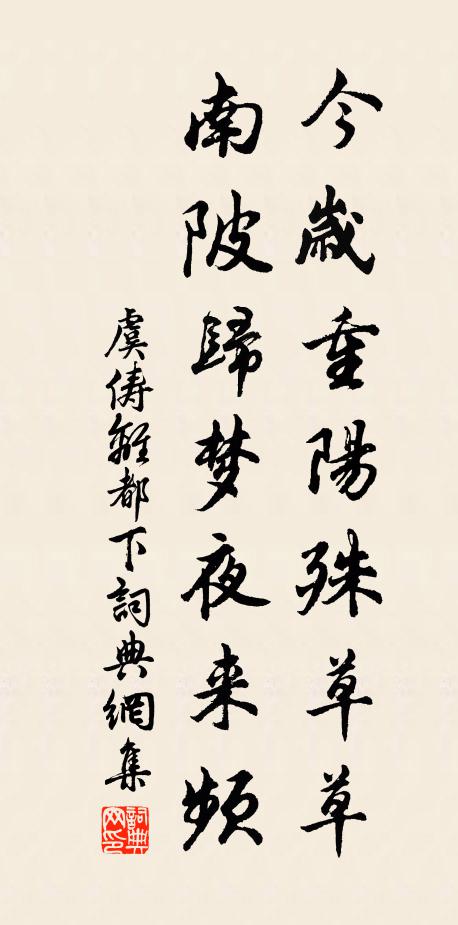 今歲重陽殊草草
南陂歸梦夜来頻
虞儔離都下詞典網集
詞典网印